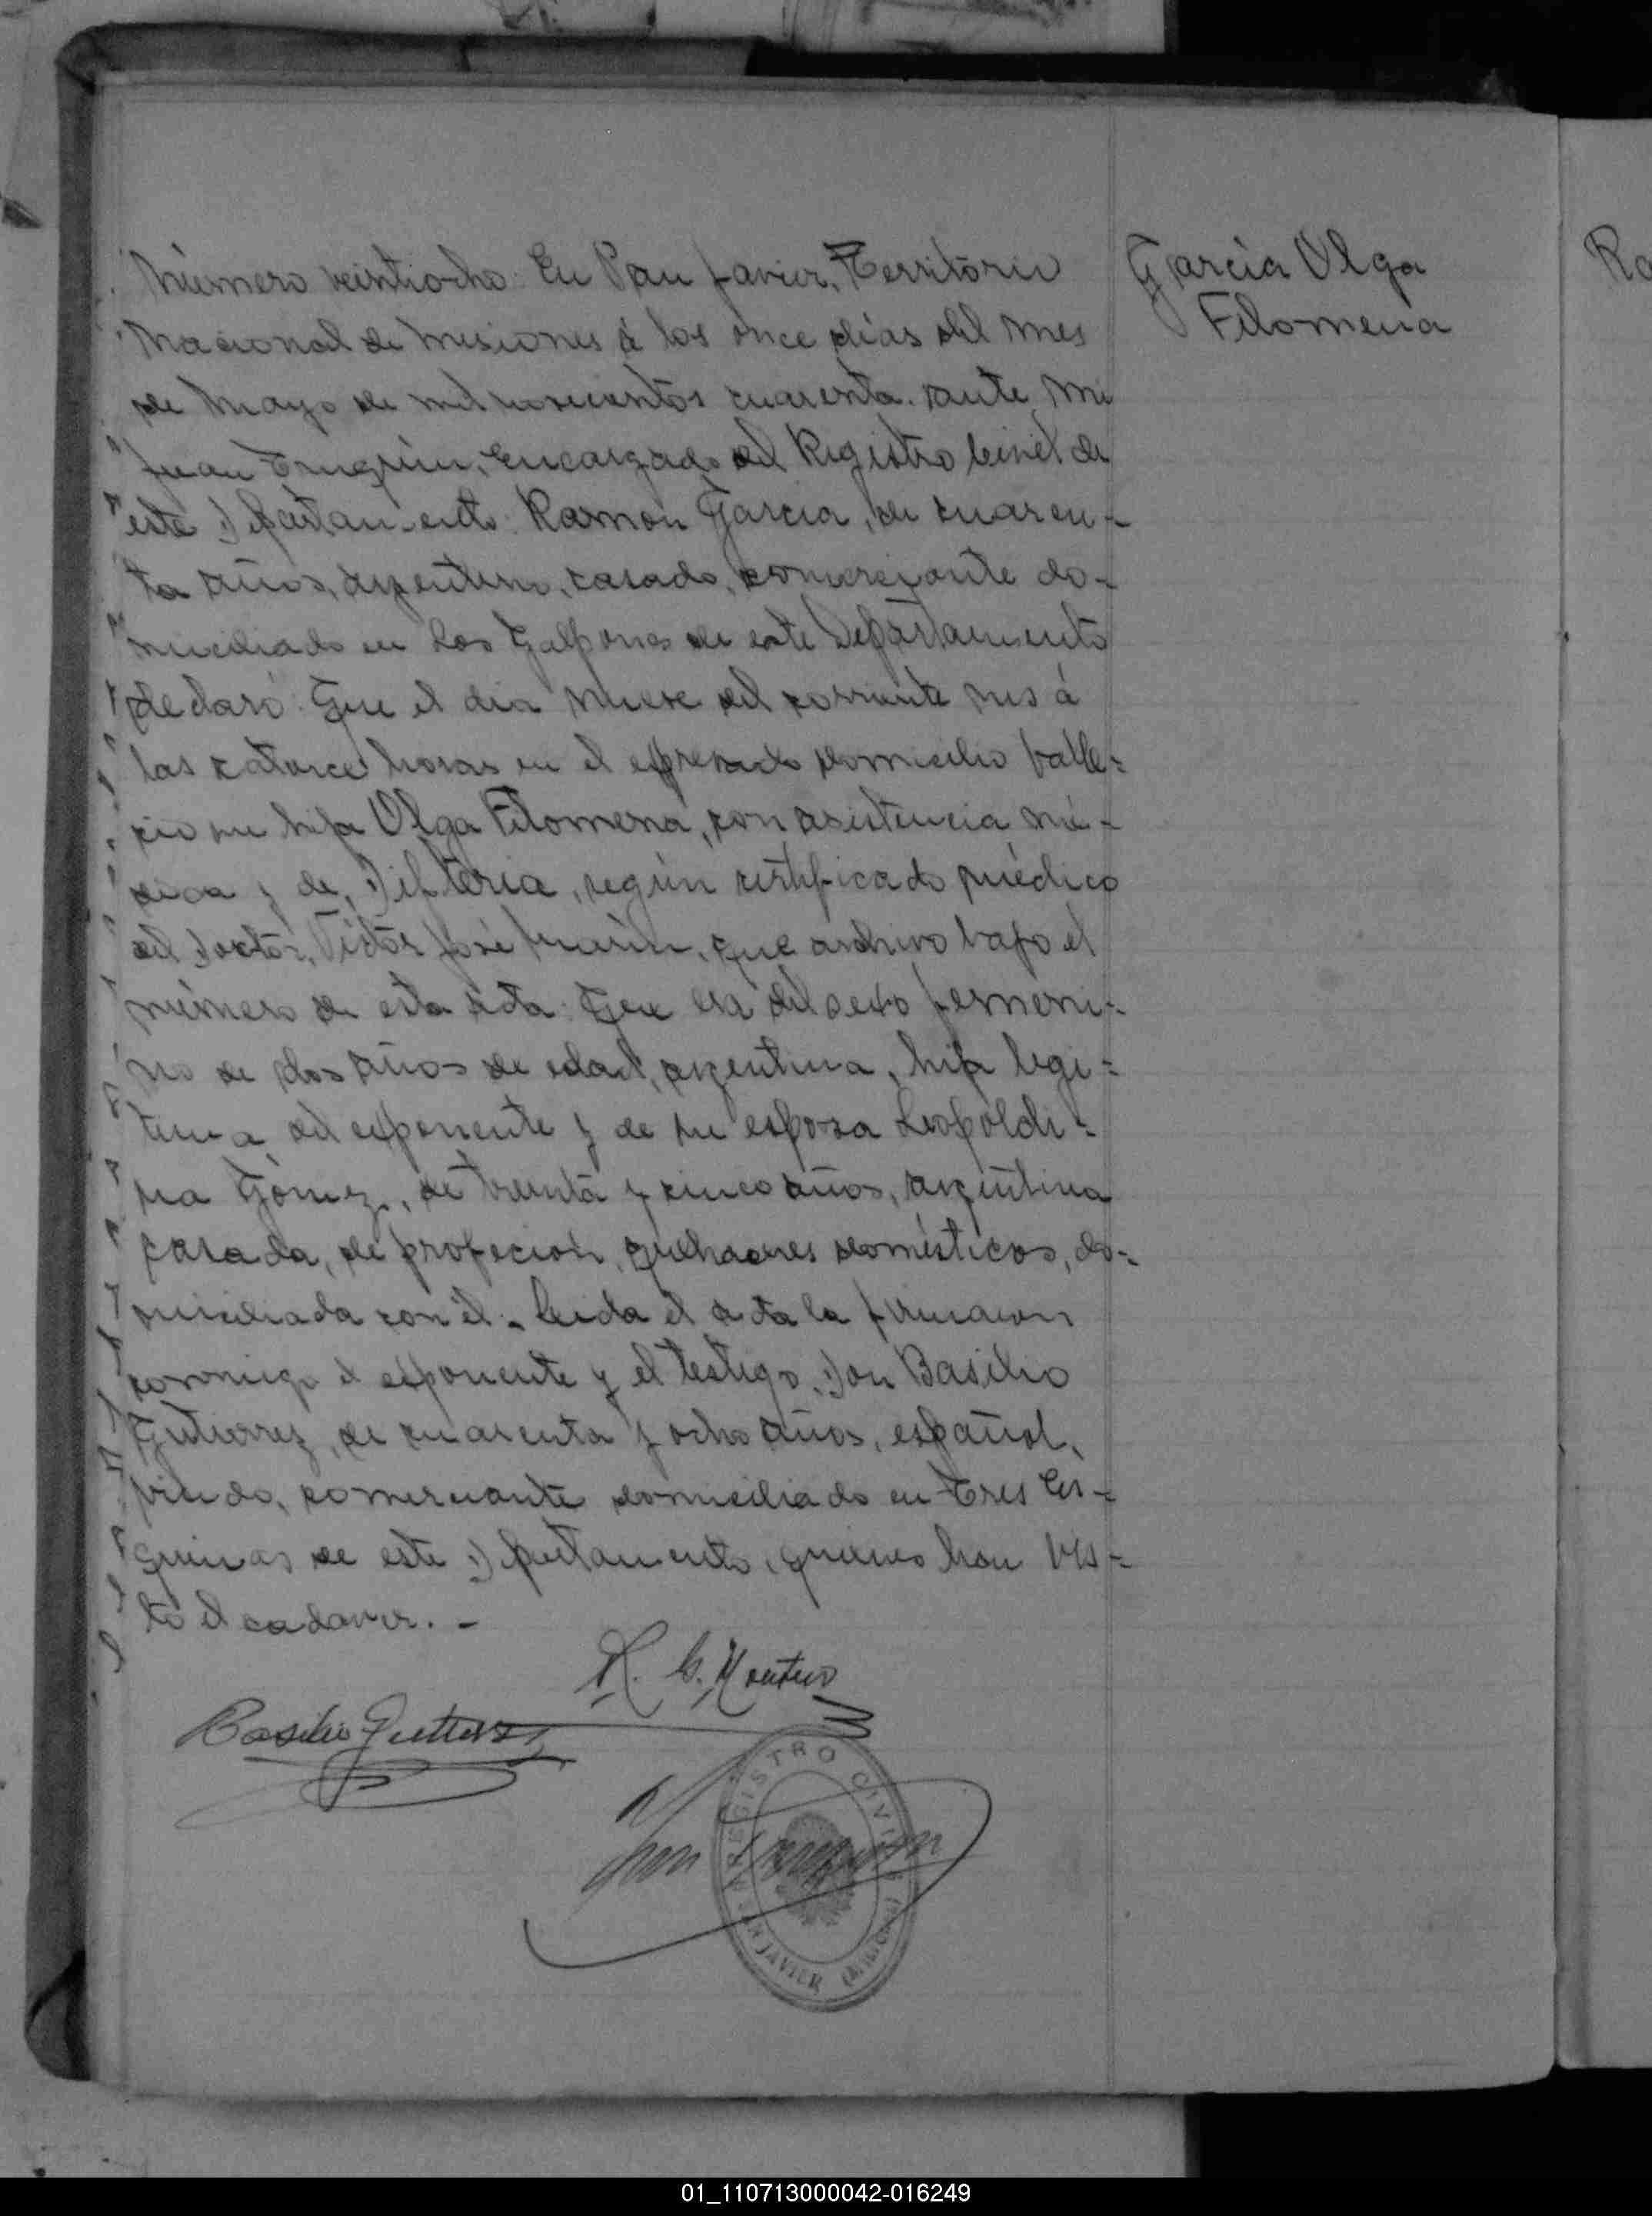 García Olga
Filomena
Ra
Número veintiocho: En San Javier, Territorio
Nacional de Misiones á los once días del mes
de Mayo de mil novecientos cuarenta. ante mi
Juan, Encargado del Registro Civil de
este Departamento: Ramon García, de cuaren-
ta años, argentino, casado, comerciante do-
miciliado en Los Galpones de este Departamento
declaró: Que el dia nueve del corriente mes á
las catorce horas en el espresado domicilio falle-
cio su hija Olga Filomena, con asistencia mé-
dica y de, Difteria, según certificado médico
del Doctor, Víctor José, que archivo bajo el
número de esta acta: Que era del sexo femeni-
no de dos años de edad, argentina, hija legi-
tima del esponente y de su esposa Leopoldi-
na Gómez, de treinta y cinco años, argentina
casada, de profecion, quehaceres domésticos, do-
miciliada con él. Leida el acta la firmaron
conmigo el esponente y el testigo, Don Basilio
Gutierrez, de cuarenta y ocho años, español,
viudo, comerciante domiciliado en Tres Es-
quinas de este Departamento, quienes han vis-
to el cadaver. -
R. G.
Basilio Gutierrez
Juan
REGISTRO CIVIL
SAN JAVIER (Misiones)
01_110713000042-016249